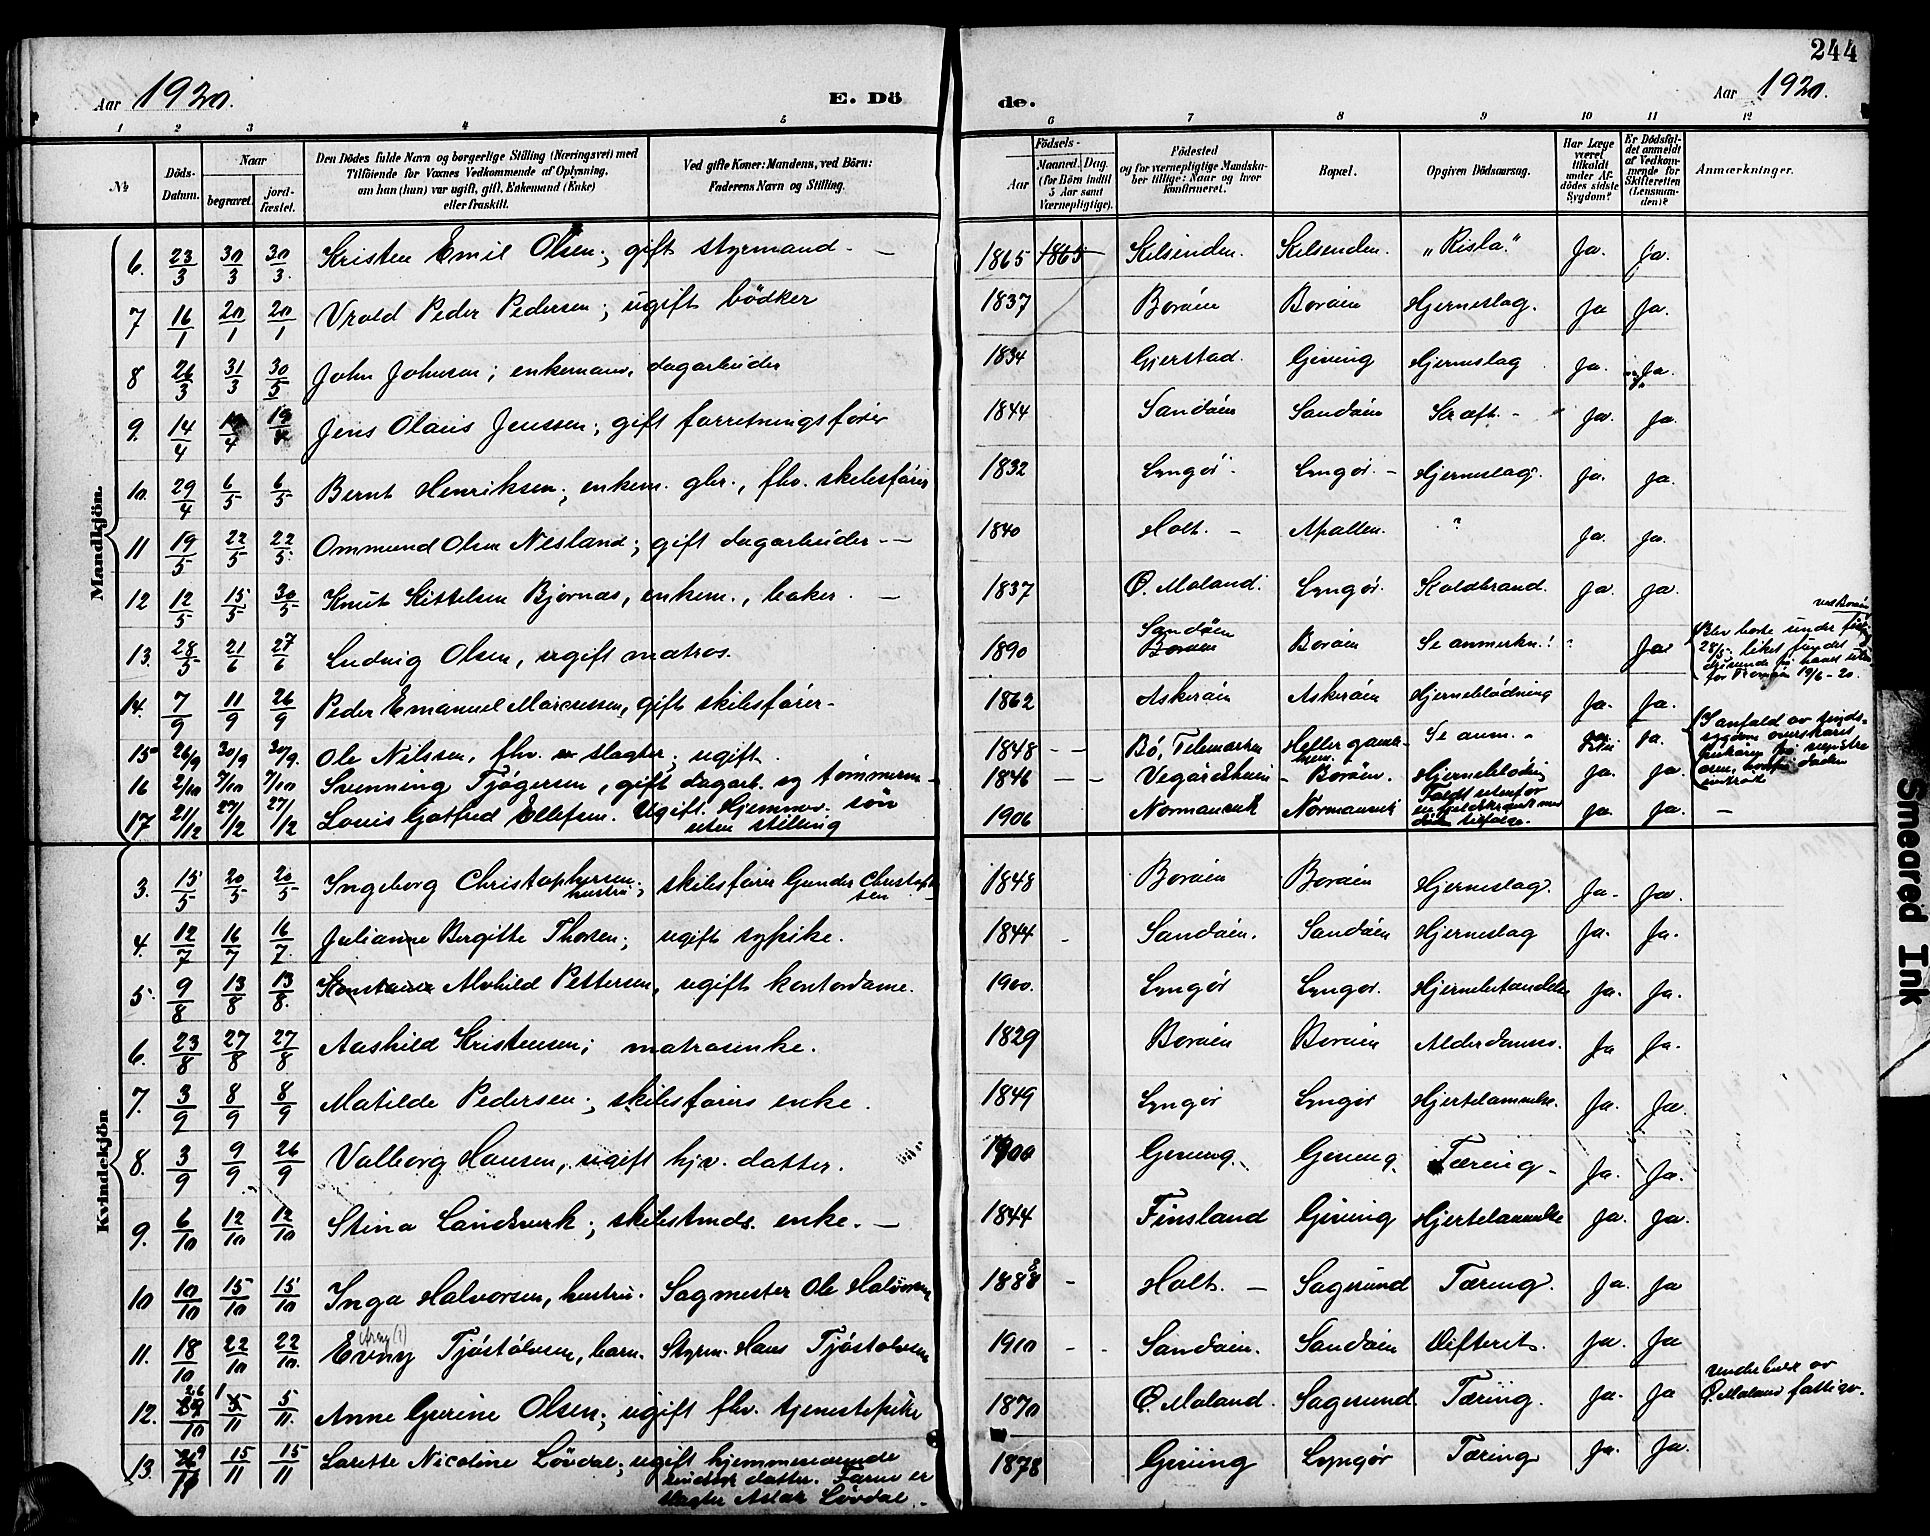 244
Aar 1920. E. Dö de. Aar 1920.
1 2 3 4 5 6 7 8 9 10 11 12
No. Döds-Datum. Naar begravet. jord-fæstet. Den Dödes fulde Navn og borgerlige Stilling (Næringsvei) med Tilföiende for Voxnes Vedkommende af Oplysning, om han (hun) var ugift, gift, Enkemand (Enke) eller fraskilt. Ved gifte Koner: Mandens, ved Börn: Faderens Navn og Stilling. Födsels- Aar Maaned. Dag. (for Börn indtil 5 Aar samt Værnepligtige). Födested og for værnepligtige Mandskaber tillige: Naar og hvor Konfirmeret. Bopæl. Opgiven Dödsaarsag. Har Læge været tilkaldt under Afdödes sidste Sygdom? Er Dödsfaldet anmeldt af Vedkommende for Skifteretten (Lensmanden)? Anmærkninger.
Mandkjön.
6. 23/3 30/3 30/3. Kristen Emil Olsen; gift styrmand - 1865 1865 Kilsunden. Kilsunden. "Risla". Ja. Ja.
7 16/1 20/1 20/1 Vrold Peder Pedersen; ugift bödker 1837 Boröen Boröen Hjerneslag. Ja Ja.
8 26/3 31/3 30/5 John Johnsen; enkemann, dagarbeider 1834 Gjerstad. Gjeving Hjerneslag Ja. Ja.
9. 14/4 19/4 19/4 Jens Olaus Jenssen; gift forretningsförer 1844 Sandöen Sandöen Kræft. - Ja. Ja.
10. 29/4 6/5 6/5 Bernt Henriksen; enkem. gbr., fhv. skibsförer 1832 Lyngör. Lyngör. - Hjerneslag. Ja. Ja.
11 19/5 22/5 22/5. Ommund Olsen Nesland; gift dagarbeider - 1840 Holt. - Apalten. ? Ja. Ja.
12 12/5 15/5 30/5 Knut Kittelsen Bjornæs, enkem., baker. - 1837 Ö. Moland. Lyngör. Koldbrand. Ja. Ja.
13. 28/5 21/6 27/6 Ludvig Olsen, ugift matros. 1890 Sandöen Boröen Boröen Se anmerkn.! " Ja. ved Boröen Blev borte under 28/5. Liket fundet drivende paa havet uten for Tromöen 19/6-20.
14. 7/9 11/9 26/9 Peder Emanuel Marcussen, gift skibsförer. 1862 Askeröen Askeröen Hjerneblödning Ja. Ja.
15 26/9 30/9 30/9. Ole Nilssen, fhv. slagter, ugift. 1848 - - Bö, Telemarken Hellor gamlehem. Se anm. - Ja. I anfald av sindssygdom overskaaret pulsåren på venstre arm, hvorpå döden indtraadt
16 2/10 7/10 7/10 Svenning Tjögersen, gift dagarb. og tömmerm. 1846 - - Vegårdsheien - Boröen. Hjerneblödning Ja. Ja.
17. 21/12 27/12 27/12 Louis Gotfred Ellefsen. Ugift. Hjemmev. sön uten stilling 1906 Normansvik Normansvik Faldt utenfor en fjeldskrænt med död tilfölge. Ja. Ja. -
Kvindekjön
3. 15/5 20/5 20/5 Ingeborg Christophersen hustru; skibsförer Gunder Christophersen 1848 Boröen Boröen Hjerneslag. Ja. Ja.
4. 12/7 16/7 16/7. Julianne Bergitte Thorsen; ugift sypike. 1844 - Sandöen. Sandöen Hjerneslag Ja. Ja.
5. 9/8 13/8 13/8. Konstanse Alvhild Pettersen, ugift kontordame. 1900. Lyngör Lyngör. Hjernebetændelse Ja. Ja.
6. 23/8 27/8 27/8 Aashild Kristensen; matrosenke. 1829 Boröen Boröen Alderdomssv. Ja Ja.
7. 3/9 8/9 8/9 Matilde Pedersen; skibsförers enke. 1849 Lyngör Lyngör Hjertelammelse. Ja. Ja.
8. 3/9 9/9 26/9 Valborg Hansen, ugift hjv. datter. 1900 Gjeving. Gjeving. Tæring. Ja. Ja.
9. 6/10 12/10 12/10 Stina Landsverk; skibstmds. enke. - 1844 Finsland Gjeving Hjertelammelse Ja. Ja.
10 10/10 15/10 15/10 Inga Halvorsen, hustru. Sagmester Ole Halvorsen 1888 - Holt. - Sagesund Tæring. Ja. Ja
11. 18/10 22/10 22/10. Evny Arny (?) Tjöstolvsen, barn. Styrm. Hans Tjöstolvsen 1910 - - Sandöen. Sandöen Difterit. Ja. Ja
12. 26/10 1/11 5/11. Anne Gurine Olsen; ugift fhv. tjenestepike 1870 Ö. Moland. Sagesund. Tæring. Ja. Ja Underhold av Ö. Moland fattigv.
13. 9/11 15/11 15/11 Larette Nicoline Lövdal; ugift hjemmeværende datter. Faren er slagter Aslak Lövdal. - 1878 Gjeving Lyngör Tæring Ja. Ja.
Smeared Ink